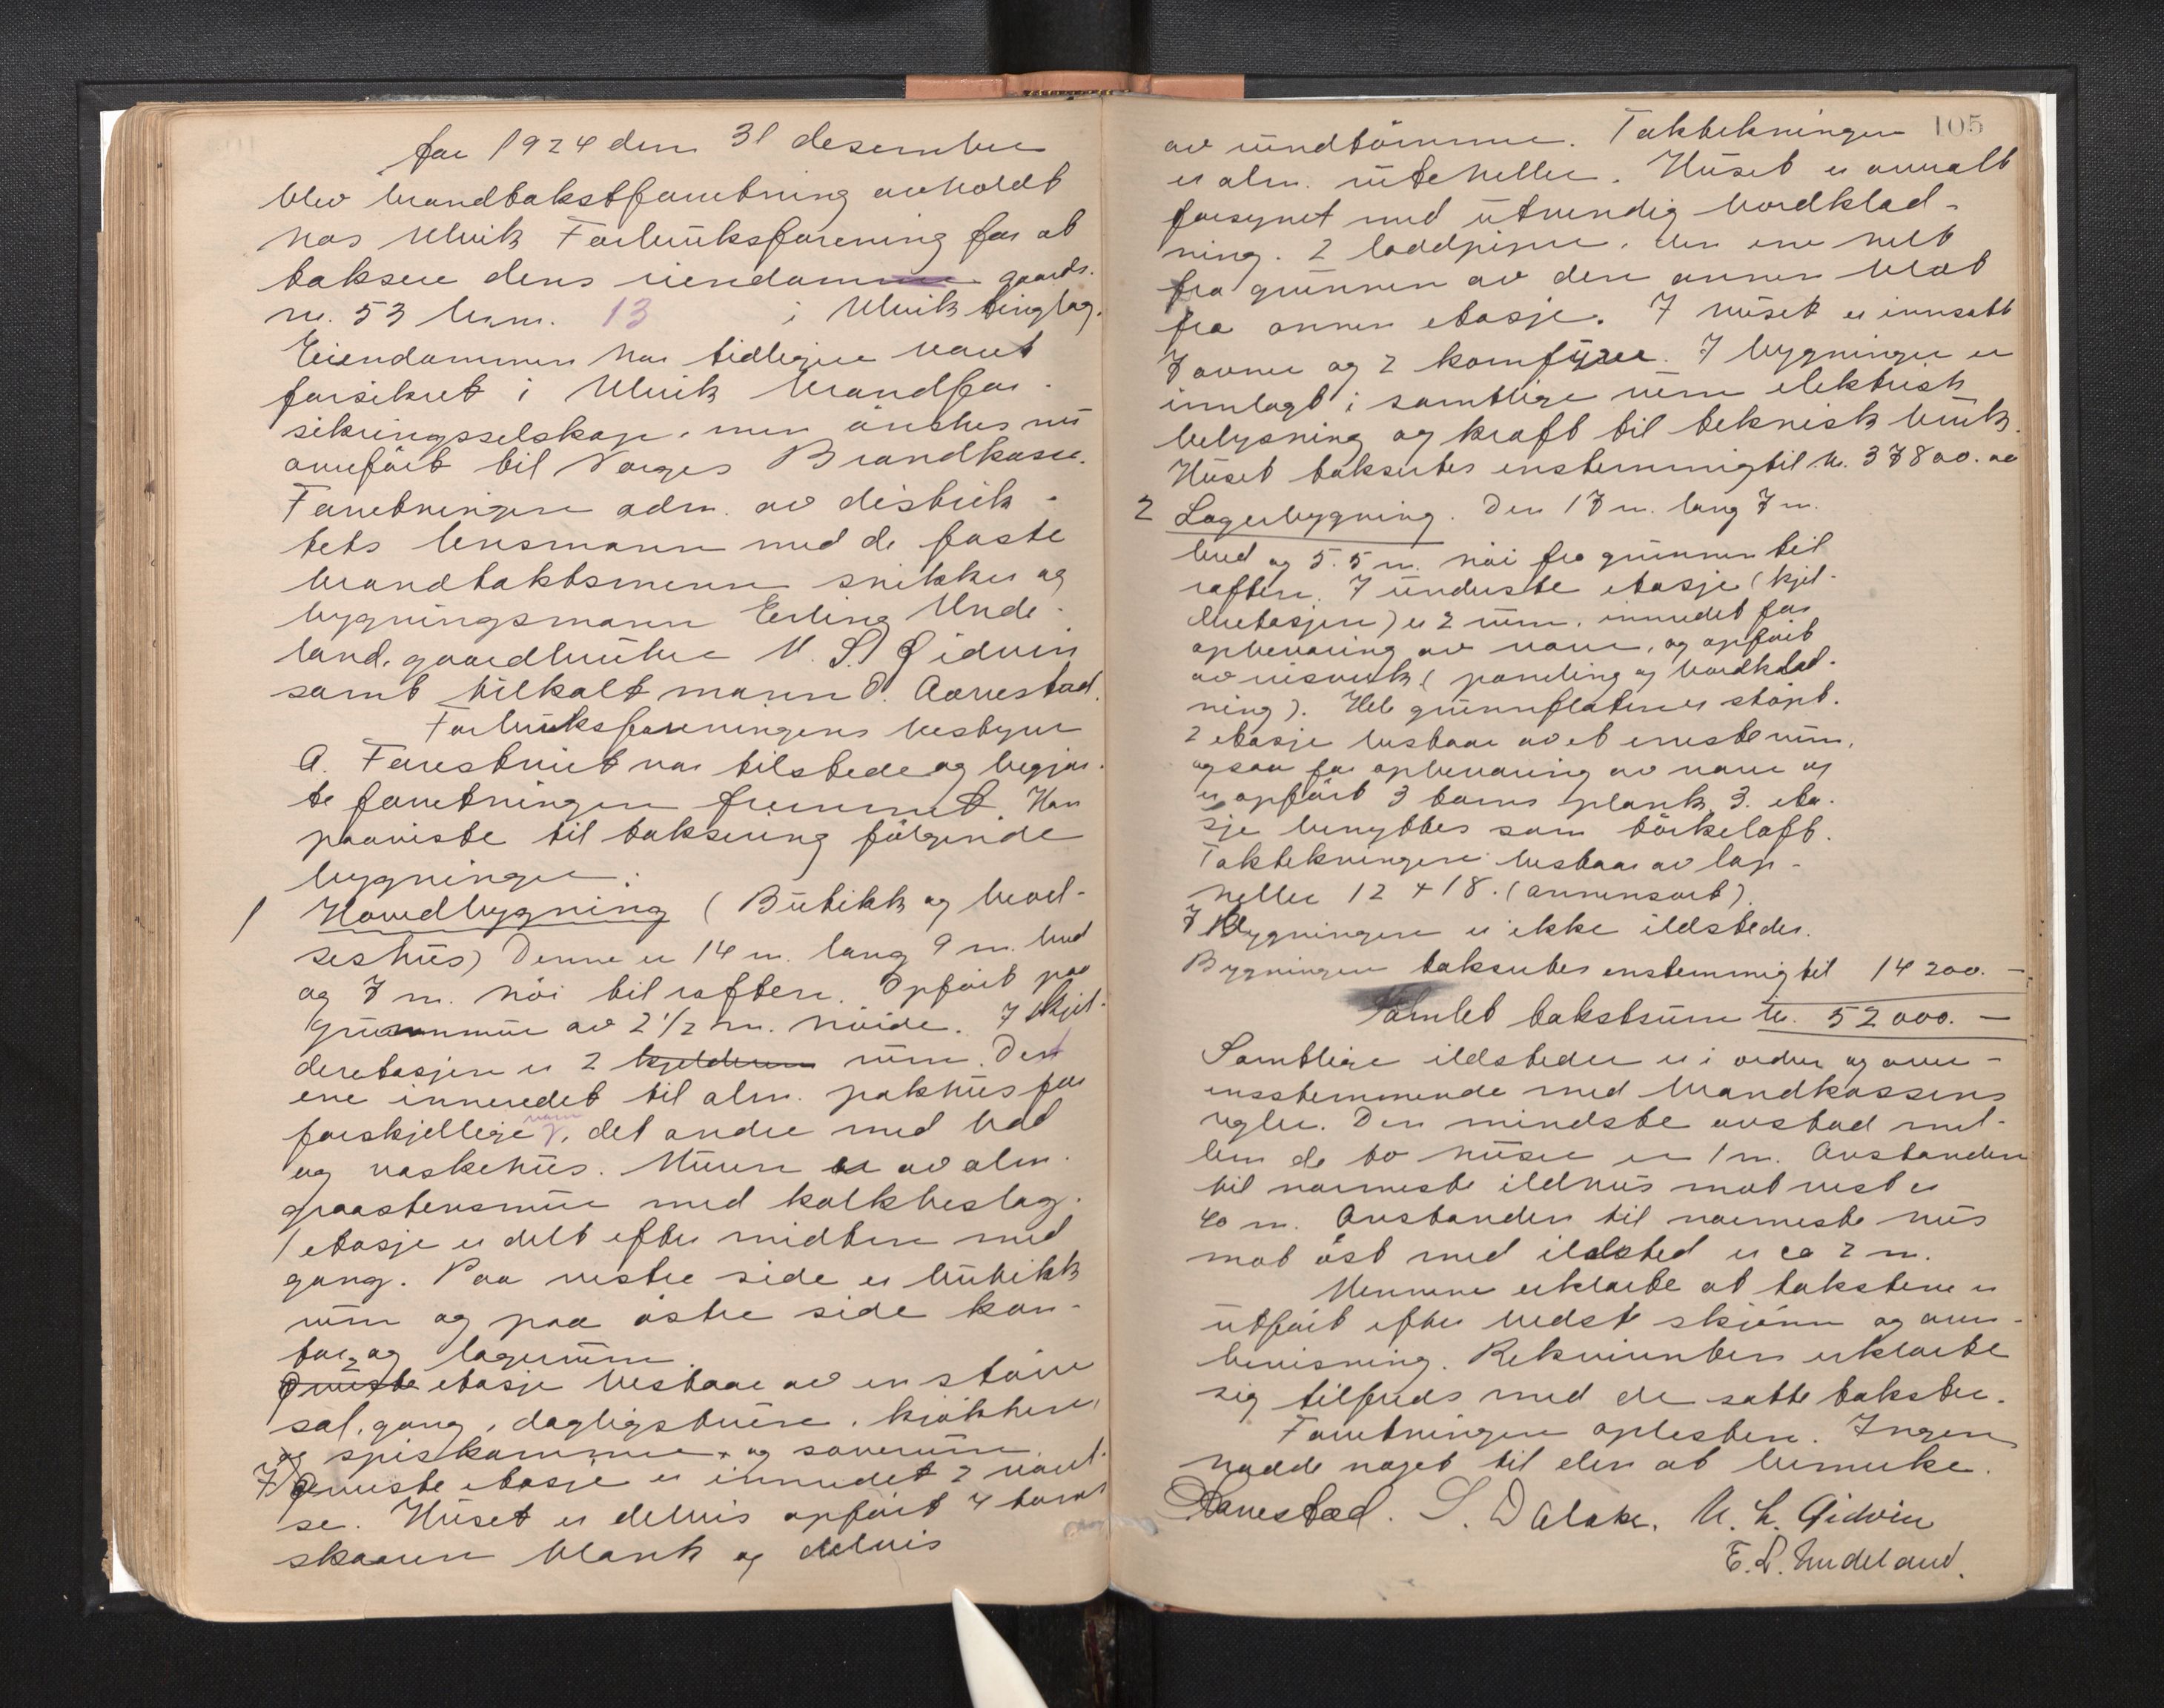 for 1924 den 31 desember
blev brandtakstforretning avholdt
hos Ulvik Forbruksforening for at
taksere dens eiendom gaards.
nr. 53 br.nr. 13 i Ulvik tinglag.
Eiendommen har tidligere vært
forsikret i Ulvik brandfor-
sikringsselskap, men önskes nu
overfört til Norges Brandkasse.
Forretningen adm. av distrik-
tets lensmann med de faste
brandtakstmenn snikker og
bygningsmann Erling Unde-
land, gaardbruker U. S. Gidvin
samt tilkalt mann O. Aarrestad.
Forbruksforeningens bestyrer
A. Tarestveit var tilstede og begjær-
te forretningen fremmet. Han
paaviste til taksering fölgende
bygninger:
1 Hovedbygning (Butikk og beboel-
seshus) Denne er 14 m. lang 9 m. bred
og 7 m. höi til raften. Opfört paa
grunnmur av 2 1/2 m. höide. I kjel-
deretasjen er 2 kjelderrum rum. Den
ene inneredet til alm. pakhus for
forskjellige varer, det andre med bad
og vaskehus. Muren er av alm.
graastensmur med kalkbeslag.
1 etasje er delt efter midten med
gang. Paa vestre side er butikk
rum og paa östre side kon-
tor og lagerrum.
2 Överste etasje bestaar av en större
sal, gang, dagligstuer, kjökken,
og spiskammer, og soverum.
I Överste etasje er inneredet 2 værel-
se. Huset er delvis opfört 4 toms
skaaren blank og delvis
105
av rundtömmer. Taktekningen
er alm. uteheller. Huset er overalt
forsynet med utvendig bordklæd-
ning. 2 loddpiper, den ene helt
fra grunnen av den annen blot
fra annen etasje. I huset er innsatt
7 ovner og 2 komfyrer. I bygningen er
innlagt i samtlige rum elektrisk
belysning og kraft til teknisk bruk.
Huset takseres enstemmig til kr. 37800.00
2 Lagerbygning. Den 17 m. lang 7 m.
bred og 5.5 m. höi fra grunnen til
raften. I underste etasje (kjel-
deretasjen) er 2 rum, inneredet for
opbevaring av varer, og opfört
av reisverk (paneling og bordklæd-
ning). Hele grunnflaten er stöpt.
2 etasje bestaar av et eneste rum,
ogsaa for opbevaring av varer og
er opfört 3 toms plank. 3. eta-
sje benyttes som törkeloft.
Taktekningen bestaar av lap-
heller 12 + 18. (annensort).
I Bygningen er ikke ildsteder.
Bygningen takseres enstemmig til 14200. —
Samlet takstsum kr. 52000. —
Samtlige ildsteder er i orden og over-
ensstemmende med brandkassens
regler. Den mindste avstad mel-
lem de to huser er 1 m. Avstanden
til nærmeste ildhus mot vest er
40 m. Avstanden til nærmeste hus
mot öst med ildsted er ca 2 m.
Mennene erklærte at takstene er
utfört efter bedste skjönn og over-
bevisning. Rekvirenten erklærte
sig tilfreds med de satte takster.
Forretningen oplesten. Ingen
hadde noget til den at bemerke.
Aarrestad. S. Dalaker. U. S. Gidvin
E. L. Undeland.